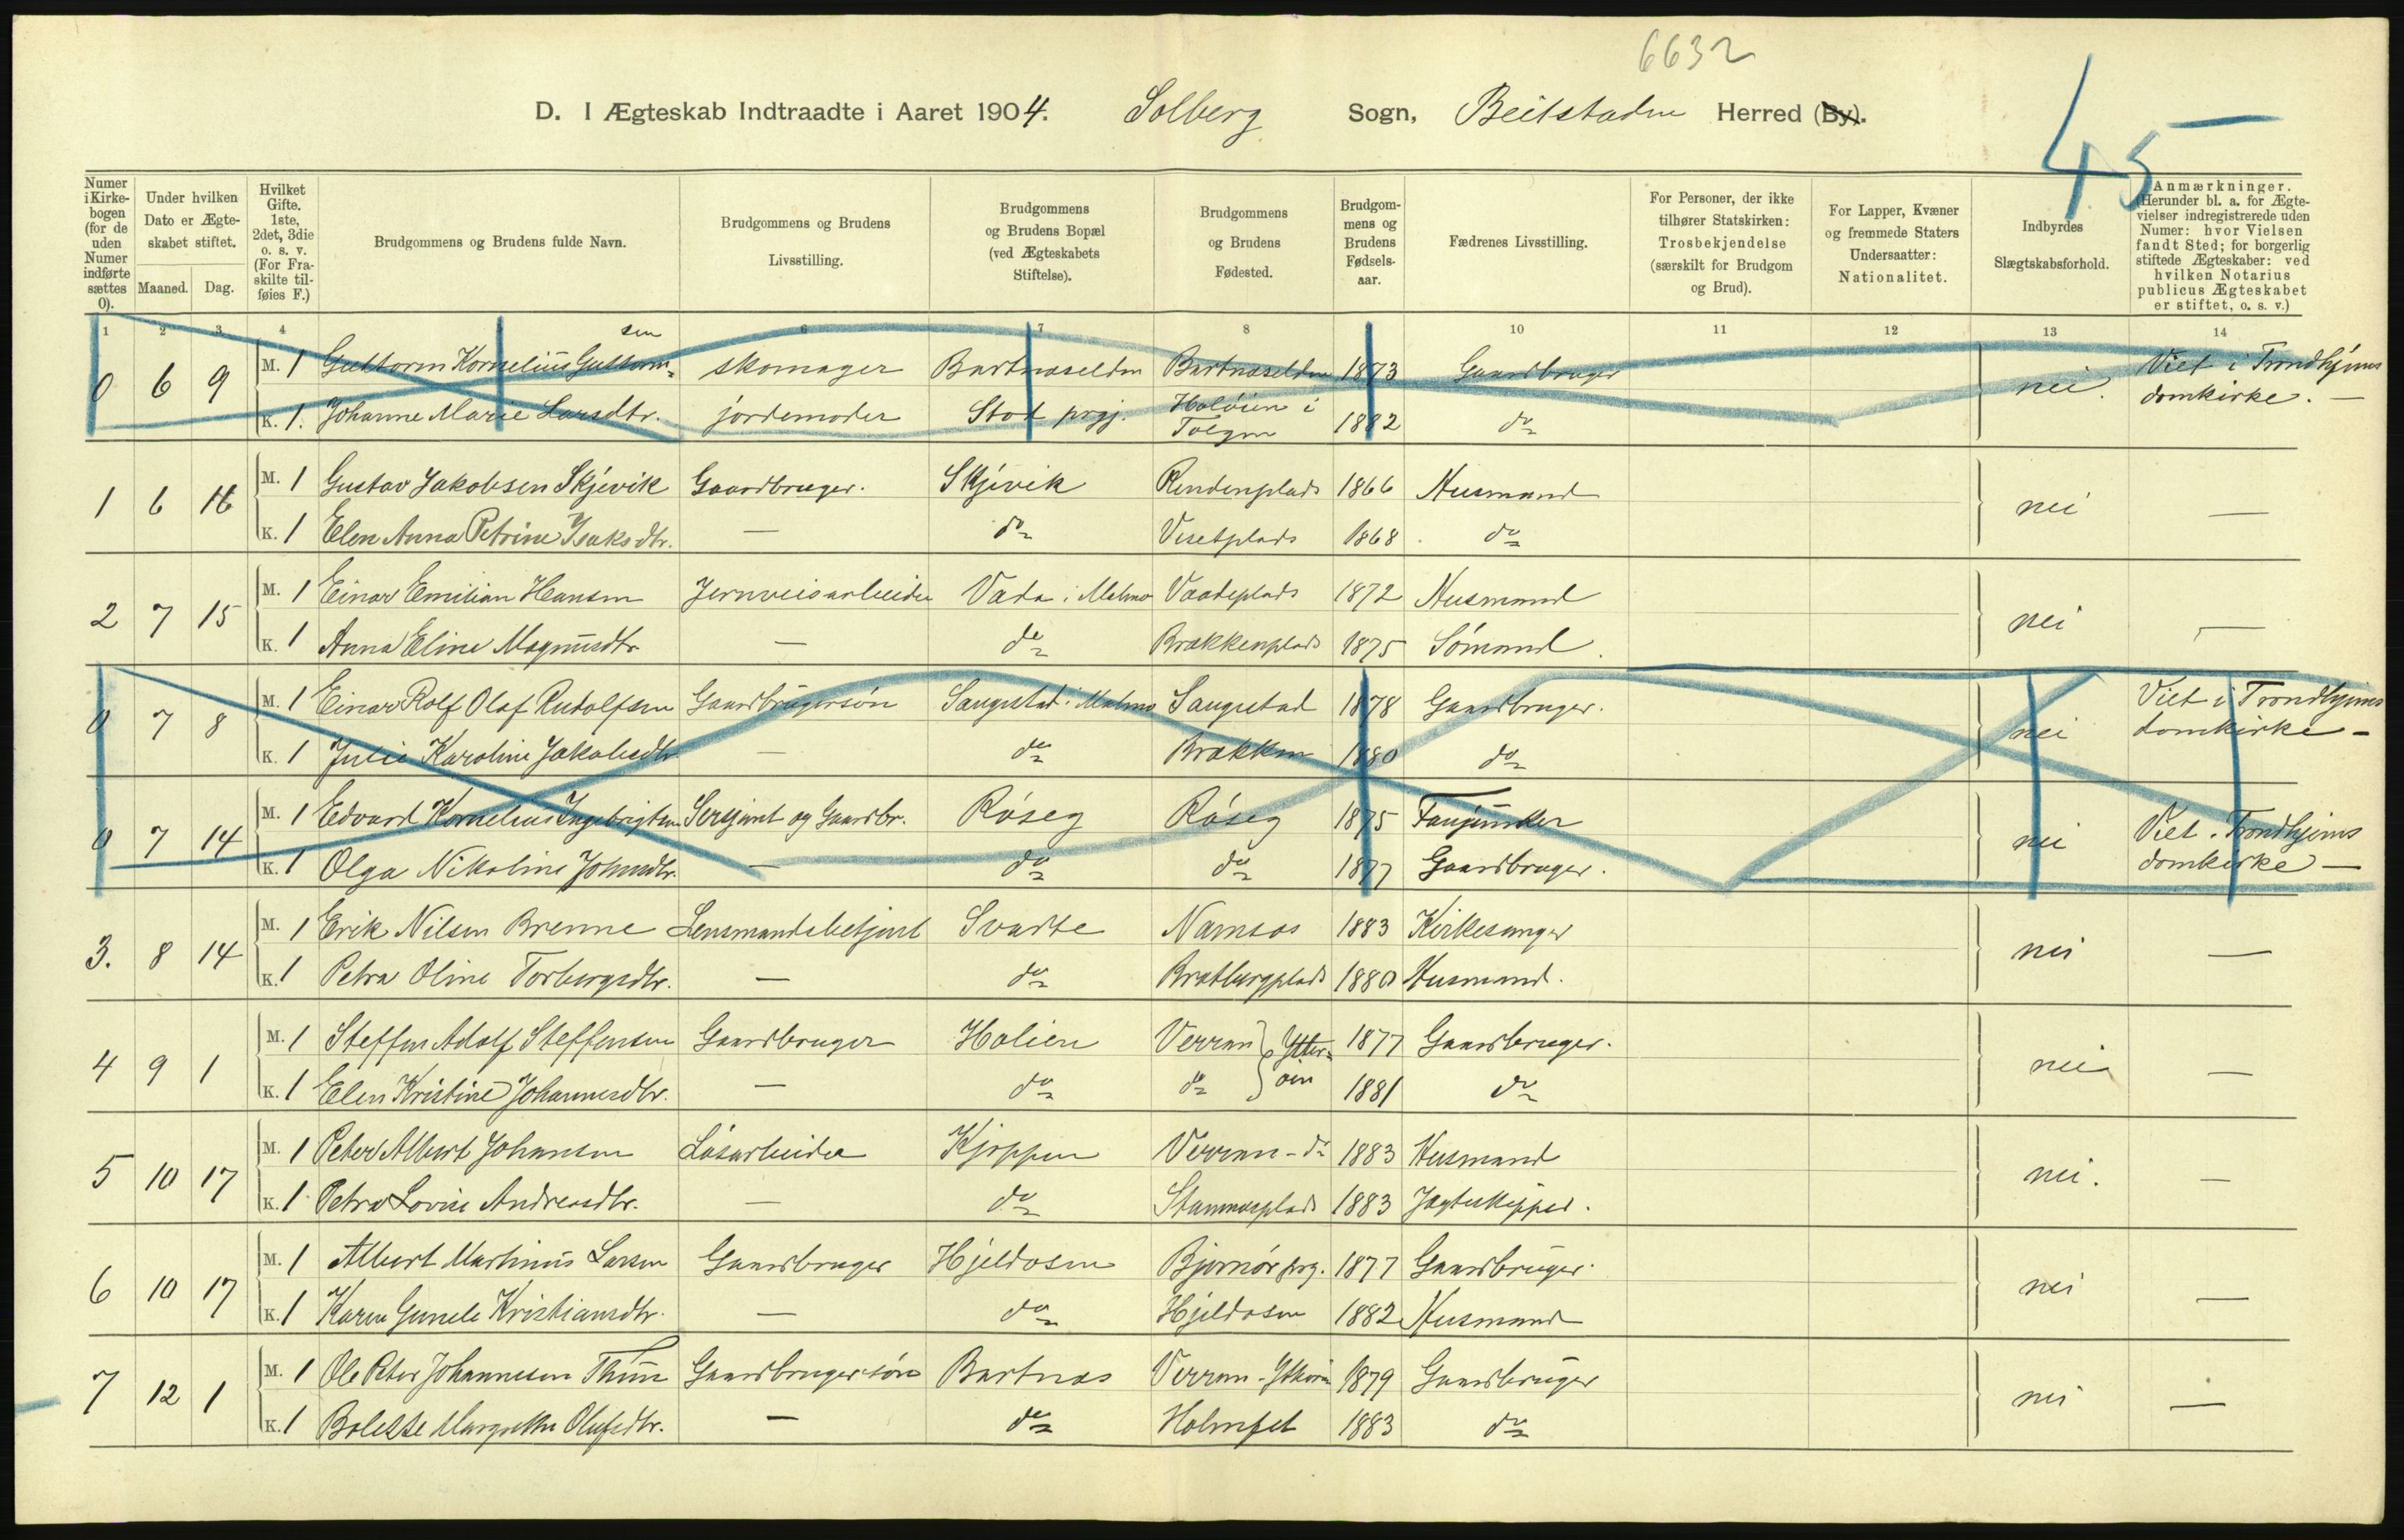 6632
45
D. I Ægteskab Indtraadte i Aaret 1904. Solberg Sogn, Beitstaden Herred (By).
Numer i Kirkebogen (for de uden Numer indførte sættes 0). Under hvilken Dato er Ægteskabet stiftet. Maaned. Dag. Hvilket Gifte. 1ste, 2det, 3die o. s. v. (For Fraskilte tilføies F.) Brudgommens og Brudens fulde Navn. Brudgommens og Brudens Livsstilling. Brudgommens og Brudens Bopæl (ved Ægteskabets Stiftelse). Brudgommens og Brudens Fødested. Brudgommens og Brudens Fødselsaar. Fædrenes Livsstilling. For Personer, der ikke tilhører Statskirken: Trosbekjendelse (særskilt for Brudgom og Brud). For Lapper, Kvæner og fremmede Staters Undersaatter: Nationalitet. Indbyrdes Slægtskabsforhold. Anmærkninger. (Herunder bl. a. for Ægtevielser indregistrerede uden Numer: hvor Vielsen fandt Sted; for borgerlig stiftede Ægteskaber: ved hvilken Notarius publicus Ægteskabet er stiftet, o. s. v.)
1 2 3 4 6 7 8 10 11 12 13 14
0 6 9 M. 1 Guttorm Kornelius Guttormsen skomager Bartnæselden Bartnæselden 1873 Gaardbruger nei. Viet i Trondhjems
K. 1. Johanne Marie Larsdtr. jordemoder Stod prgj. Holøien i Tolgen 1882 do domkirke. —
1 6 16 M. 1 Gustav Jakobsen Skjevik Gaardbruger. Skjevik Rendenplads 1866 Husmand nei —
K. 1 Elen Anna Petrine Isaksdtr. — do Visetplads 1868 do
2 7 15 M. 1 Einar Emilian Hansen Jernveisarbeider Vada i Malmo Vaadeplads 1872 Husmand nei —
K. 1 Anna Eline Magnusdtr. — do Brækkenplads 1875 Sømand.
0 7 8 M. 1 Einar Rolf Olaf Rudolfsen Gaardbrugersøn Saugestad i Malmo Saugestad 1878 Gaardbruger. nei Viet i Trondhjems
K. 1 Julie Karoline Jakobsdtr — do Brækken 1880 do domkirke —
0 7 14 M. 1 Edvard Kornelius Ingebrigtsen Sersjant og Gaardbr. Røseg Røseg 1875 Fanejunker nei Viet i Trondhjems
K. 1 Olga Nikoline Johnsdtr. — do do 1877 Gaardbruger. domkirke —
3. 8 14 M. 1 Erik Nilsen Brenne Lensmandsbetjent Svarte Namsos 1883 Kirkesanger nei —
K. 1 Petra Oline Torbergsdtr. — do Bratbergplads 1880 Husmand.
4 9 1 M. 1 Steffen Adolf Steffensen Gaardbruger Holien Verran } Ytterøen 1877 Gaardbruger. nei —
K. 1 Elen Kristine Johannesdtr. — do do 1881 do
5 10 17 M. 1 Peter Albert Johansen Løsarbeider Kjøppen Verran - do 1883 Husmand nei. —
K. 1 Petra Lovise Andreasdtr. — do Stamnæsplads 1883 Jagteskipper.
6 10 17 M. 1 Albert Martinus Larsen Gaardbruger Hjeldosen Bjørnør prg. 1877 Gaardbruger. nei —
K. 1 Karen Gunele Kristiansdtr. — do Hjeldosen 1882 Husmand
7 12 1 M. 1 Ole Peter Johannesen Thun Gaardbrugersøn Bartnæs Verran - Ytterøen 1879 Gaardbruger nei —
K. 1 Bolette Margrethe Olufsdtr. — do Holmset 1883 do